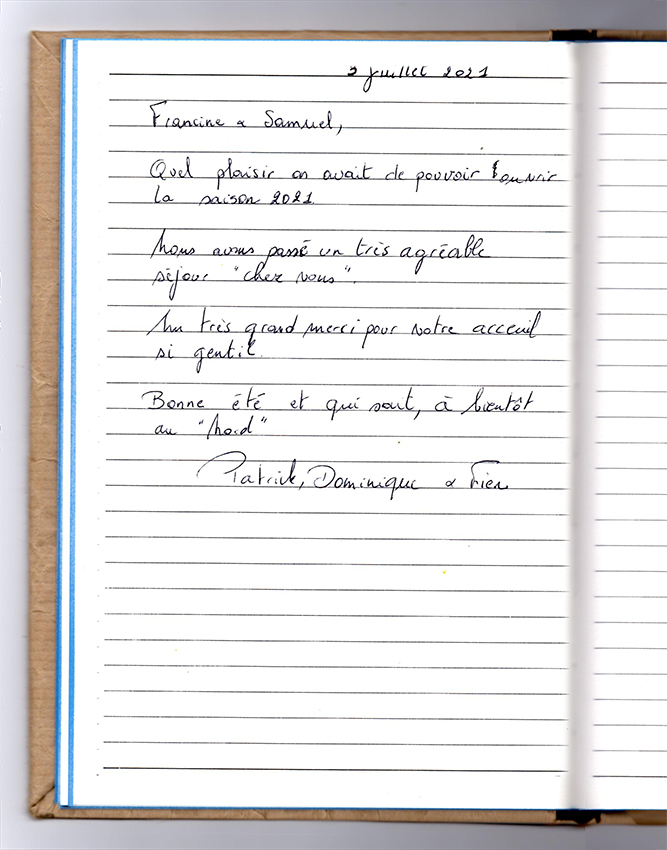 3 juillet 2021
Francine & Samuel,
Quel plaisir on avait de pouvoir ouvrir
la saison 2021.
Nous avons passé un très agréable
séjour "chez vous".
Un très grand merci pour votre acceuil
si gentil.
Bonne été et qui sait, à bientôt
au "Nord"
Patrick, Dominique & Fien